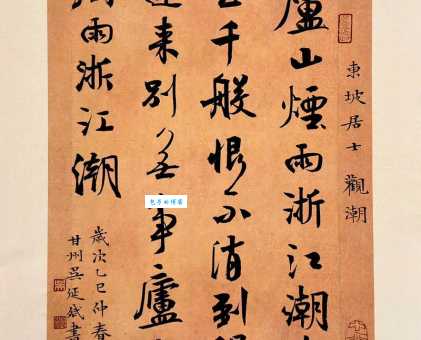 東坡居士 觀潮
廬山煙雨浙江潮
至千般恨不消到得
還來別無事廬
煙雨浙江潮
歲次乙巳仲春
甘州吳延斌書